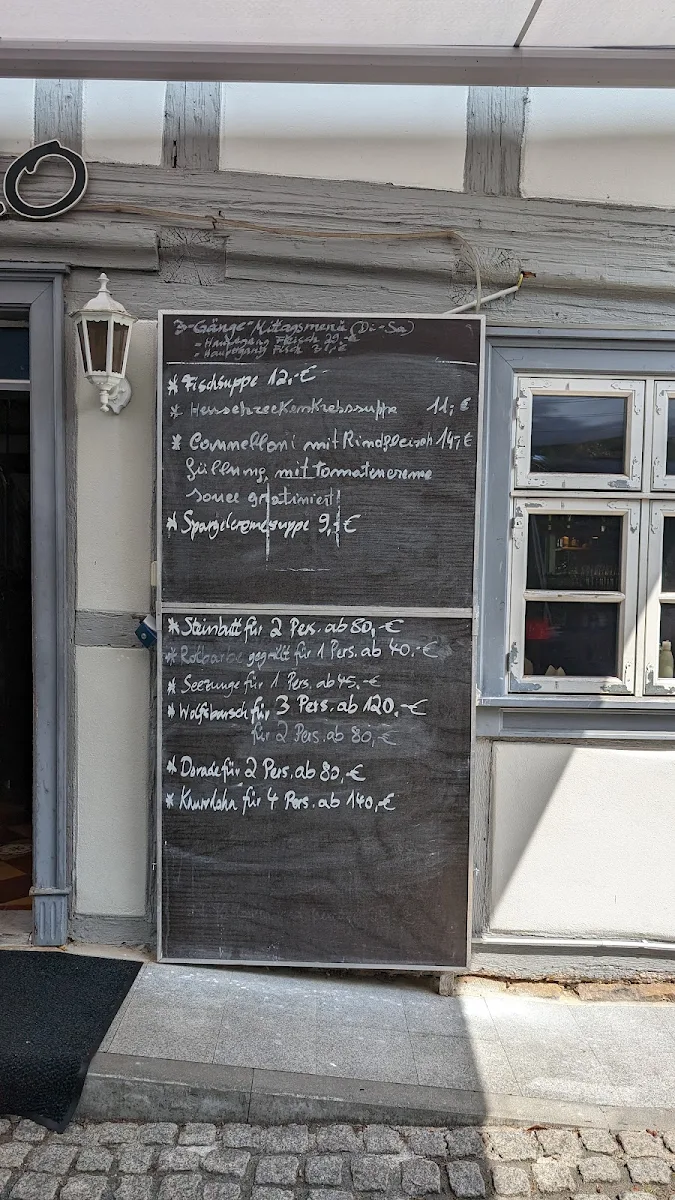 O
3-Gänge-Mittagsmenü (Di-Sa)
- Hauptgang Fleisch 29,-€
- Hauptgang Fisch 31,-€
* Fischsuppe 12,-€
* Heuschreckenkrebssuppe 11,-€
* Cannelloni mit Rindfleisch 14,-€
füllung mit tomatencreme
souce gratiniert
* Spargelcremesuppe 9,-€
* Steinbutt für 2 Pers. ab 80,-€
* Rotbarbe gegrillt für 1 Pers. ab 40,-€
* Seezunge für 1 Pers. ab 45,-€
* Wolfsbarsch für 3 Pers. ab 120,-€
für 2 Pers. ab 80,-€
* Dorade für 2 Pers. ab 80,-€
* Knurrhahn für 4 Pers. ab 140,-€